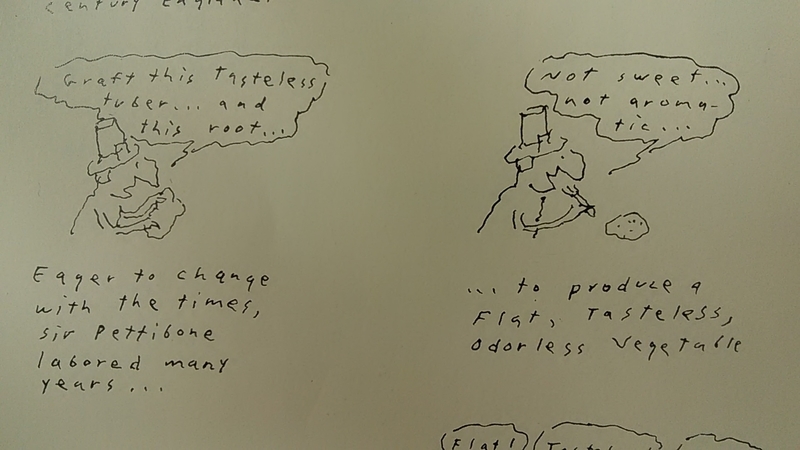 century England.
Graft this Tasteless
tuber... and
this root...
Not sweet...
not aroma-
tic...
Eager to change
with the times,
sir Pettibone
labored many
years...
... to produce a
Flat, Tasteless,
Odorless Vegetable
Flat!